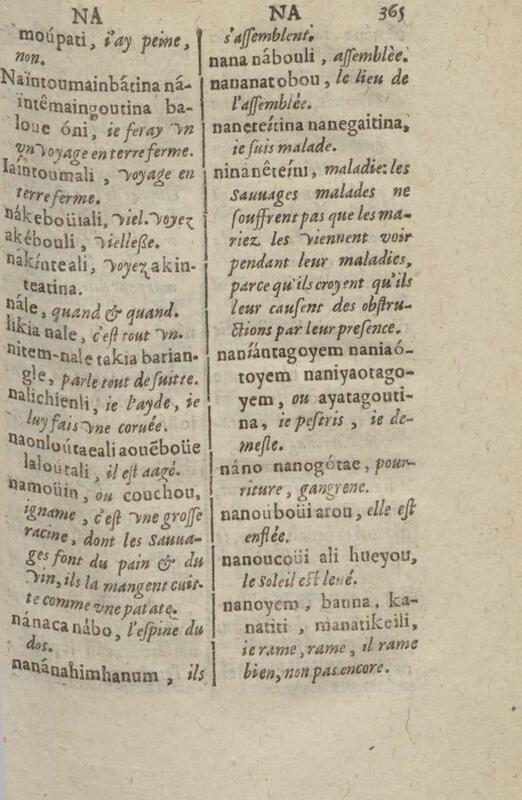 NA
moúpati, i'ay peine,
non.
Naïntoumainbátina ná-
intêmaingoutina ba-
loue óni, ie feray vn
vn voyage en terre ferme.
Iaintoumali, voyage en
terre ferme.
nákeboüiali, viel. voyez
akébouli, vielleße.
nakínteali, voyez akin-
teatina.
nále, quand & quand.
likia nale, c'est tout vn.
nitem-nale takia barian-
gle, parle tout de suitte.
nalichienli, ie l'ayde, ie
luy fais vne coruée.
naonloútaeali aouēboüe
laloutali, il est aagé.
namoüin, ou couchou,
igname, c'est vne grosse
racine, dont les Sauua-
ges font du pain & du
vin, ils la mangent cuit-
te comme vne patate.
nánaca nábo, l'espine du
dos.
nanánahimhanum, ils
NA 365
s'assemblent.
nana nábouli, assemblèe.
nananatobou, le lieu de
l'assemblée.
naneteítina nanegaitina,
ie suis malade.
ninanêteíni, maladie: les
Sauuages malades ne
souffrent pas que les ma-
riez les viennent voir
pendant leur maladies,
parce qu'ils croyent qu'ils
leur causent des obstru-
ctions par leur presence.
naníántagoyem naniaó-
toyem naniyaotago-
yem, ou ayatagouti-
na, ie pestris, ie de-
mesle.
náno nanogótae, pour-
riture, gangrene.
nanouboüi arou, elle est
enflée.
nanoucoüi ali hueyou,
le Soleil est leué.
nanoyem, bauna, ka-
natiti, manatikeili,
ie rame, rame, il rame
bien, non pas encore.